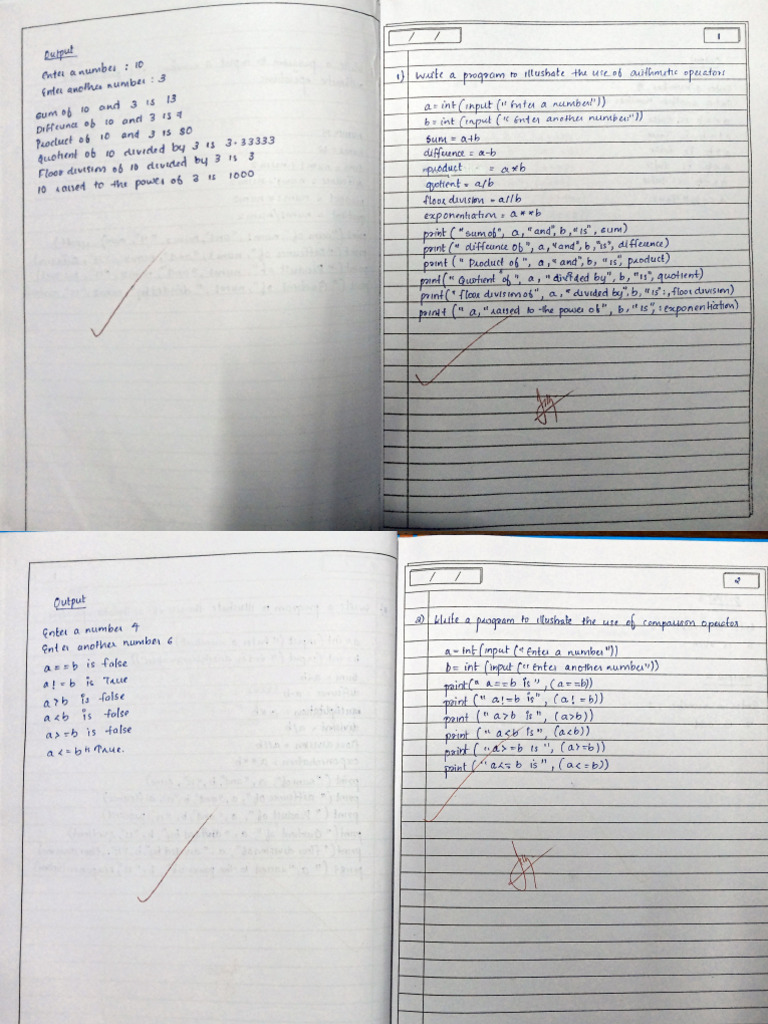 Output
Enter a number : 10
Enter another number : 3
Sum of 10 and 3 is 13
Diffrence of 10 and 3 is 7
Product of 10 and 3 is 30
Quotient of 10 divided by 3 is 3.33333
Floor division of 10 divided by 3 is 3
10 raised to the power of 3 is 1000
/ /
1
1) Write a program to illustrate the use of arithmetic operators
a = int (input ("Enter a number!"))
b = int (input ("Enter another number"))
sum = a+b
difference = a-b
product = a*b
quotient = a/b
floor division = a//b
exponentiation = a**b
print ("sum of", a, "and", b, "is", sum)
print (" diffrence of", a, "and", b, "is", diffrence)
print (" Product of", a, "and", b, "is", product)
print (" Quotient of", a, "divided by", b, "is", quotient)
print (" floor division of", a, "divided by", b, "is":, floor division)
print (" a, "raised to the power of", b, "is", : exponentiation)
Output
Enter a number 4
Enter another number 6
a==b is false
a!=b is True
a>b is false
a<b is false
a>=b is false
a<=b is True.
/ /
2
2) Write a program to illustrate the use of comparison operator
a = int (input ("Enter a number"))
b = int (input ("Enter another number"))
print (" a==b is", (a==b))
print (" a!=b is", (a!=b))
print (" a>b is", (a>b))
print (" a<b is", (a<b))
print (" a>=b is ", (a>=b))
print (" a<=b is", (a<=b))